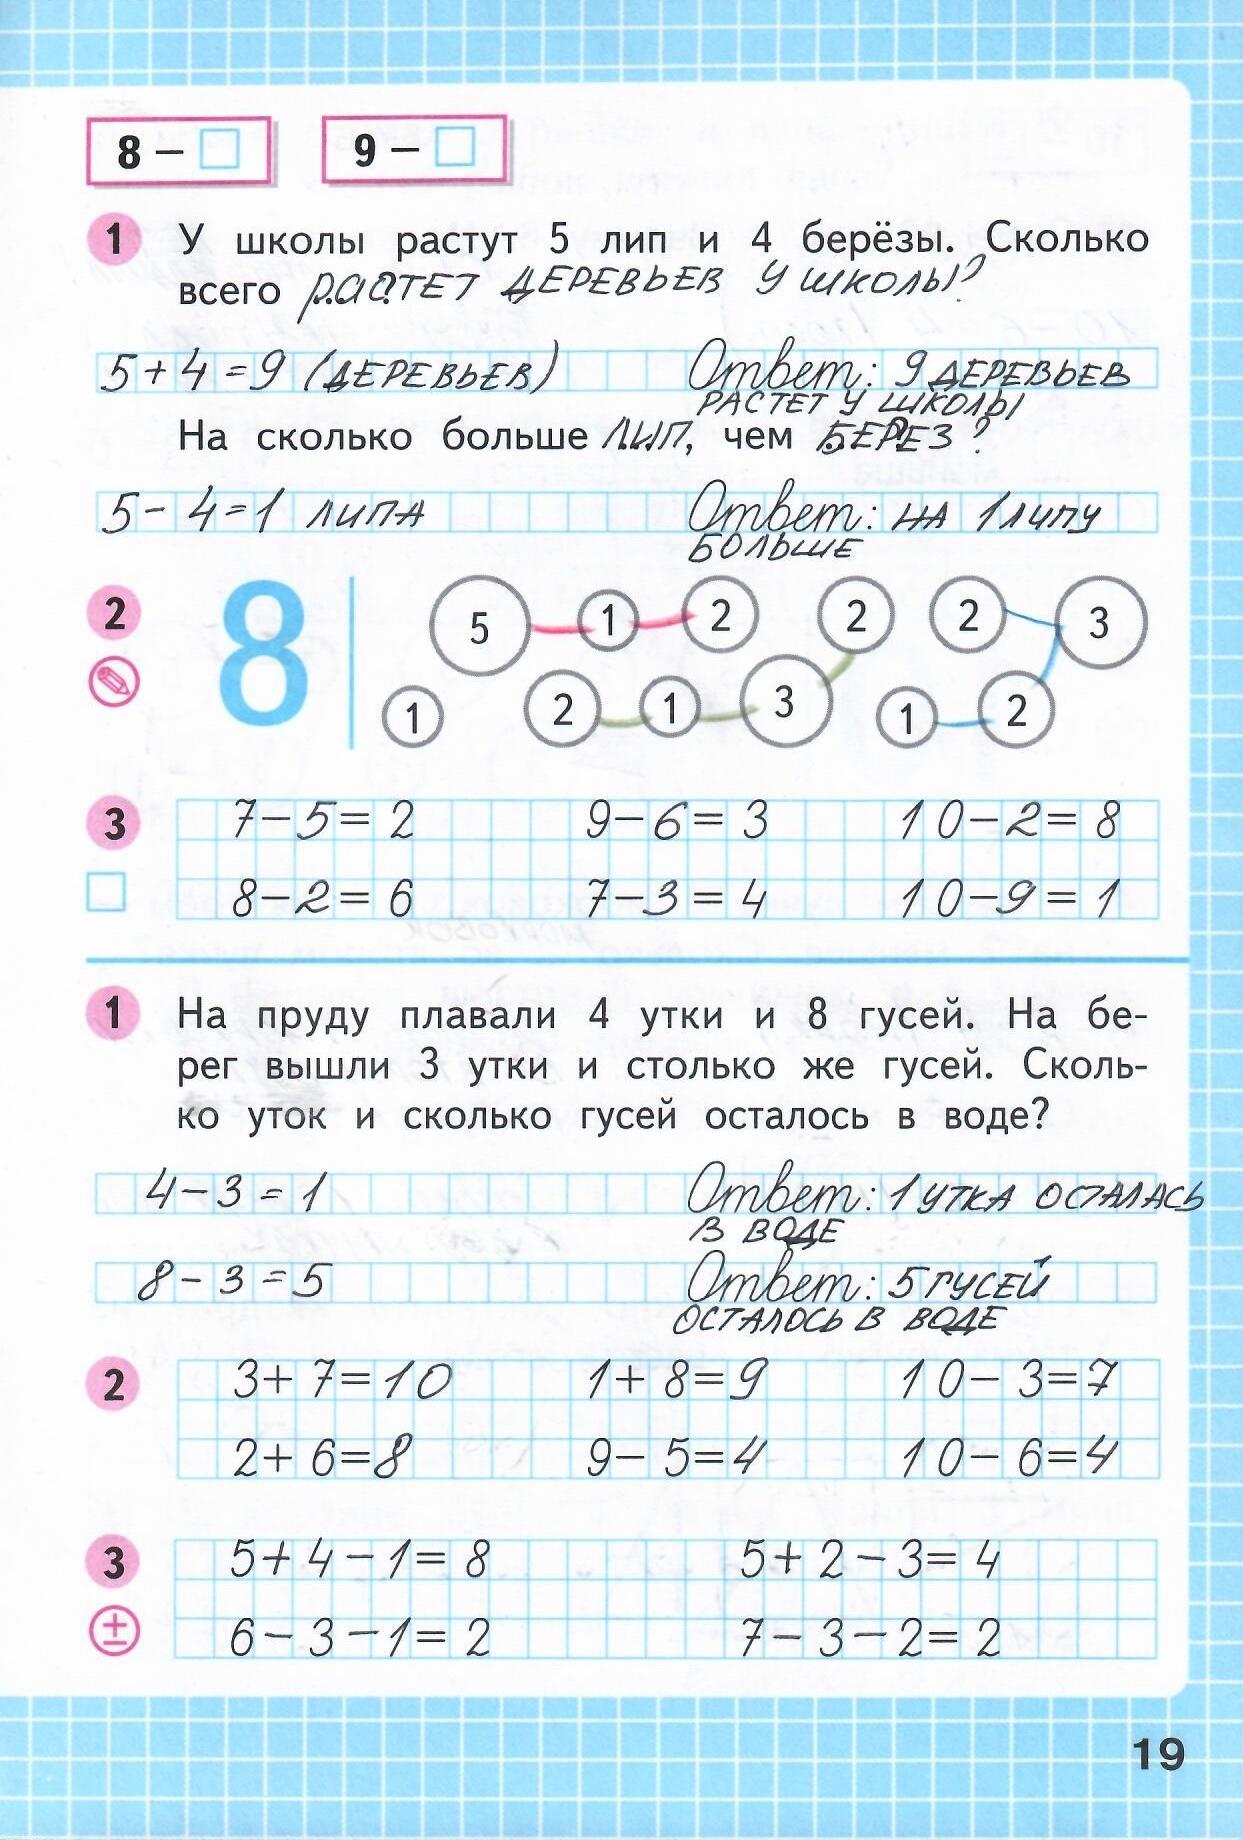 8 – 9 –
1 У школы растут 5 лип и 4 берёзы. Сколько
всего РАСТЕТ ДЕРЕВЬЕВ У ШКОЛЫ?
5+4=9 (ДЕРЕВЬЕВ) Ответ: 9 ДЕРЕВЬЕВ
РАСТЕТ У ШКОЛЫ
На сколько больше ЛИП, чем БЕРЕЗ?
5-4=1 ЛИПА Ответ: НА 1 ЛИПУ
БОЛЬШЕ
2 8 5 1 2 2 2 3
1 2 1 3 1 2
3 7–5=2 9–6=3 10–2=8
8–2=6 7–3=4 10–9=1
1 На пруду плавали 4 утки и 8 гусей. На бе-
рег вышли 3 утки и столько же гусей. Сколь-
ко уток и сколько гусей осталось в воде?
4–3=1 Ответ: 1 УТКА ОСТАЛАСЬ
В ВОДЕ
8–3=5 Ответ: 5 ГУСЕЙ
ОСТАЛОСЬ В ВОДЕ
2 3+7=10 1+8=9 10–3=7
2+6=8 9–5=4 10–6=4
3 5+4–1=8 5+2–3=4
± 6–3–1=2 7–3–2=2
19